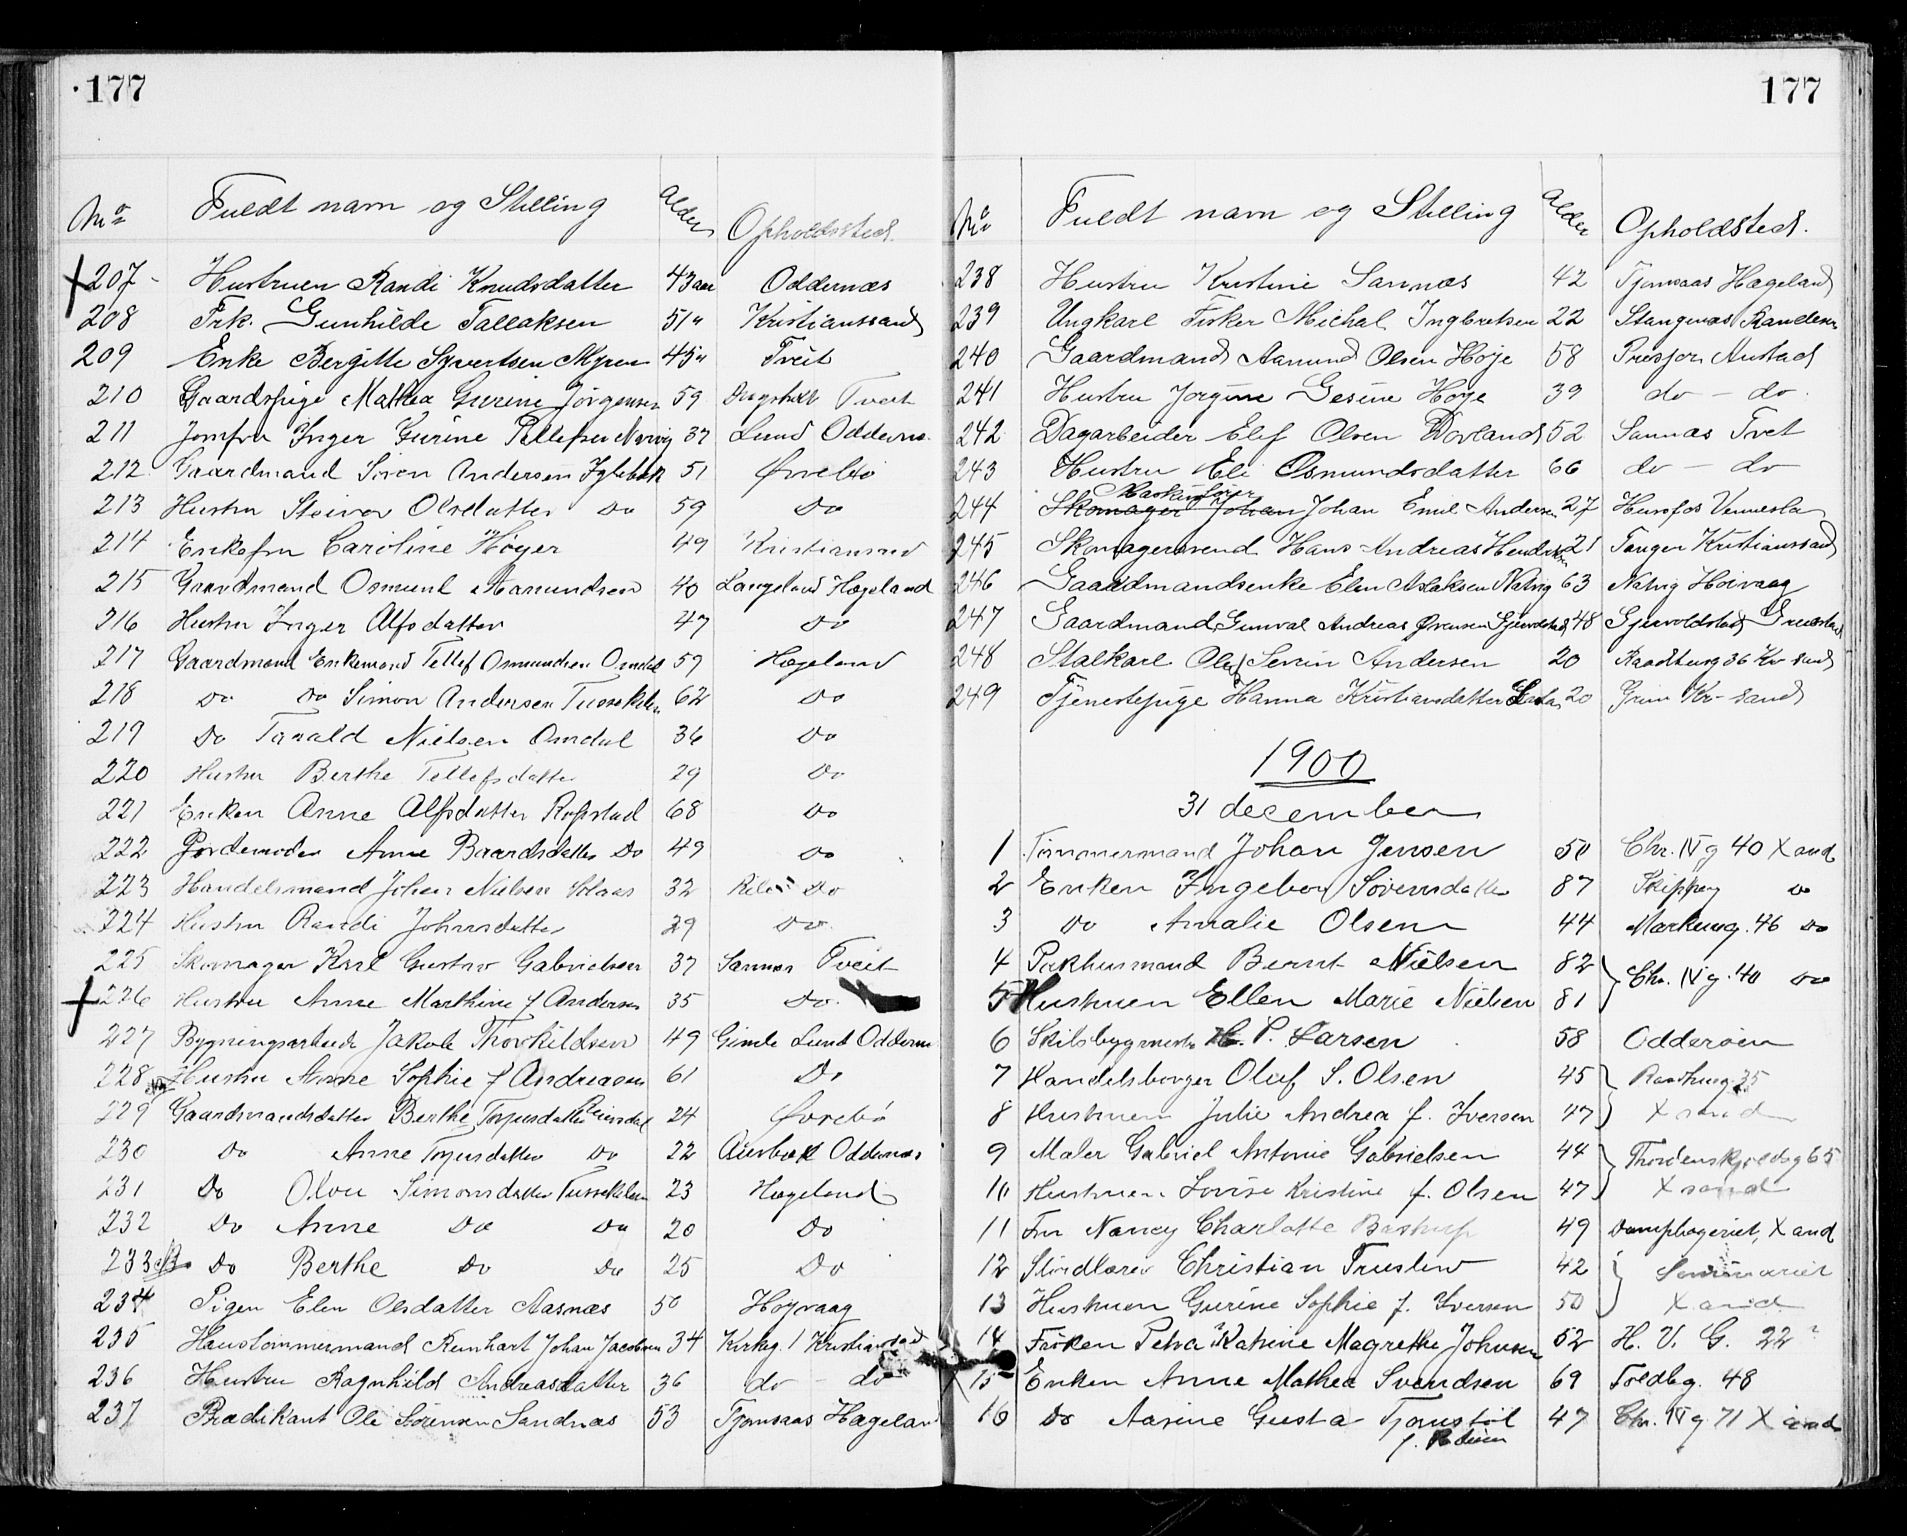 177
No Fuldt navn og Stilling Alder Opholdssted.
207 Hustruen Randi Knudsdatter 43 aar Oddernæs
208 Frk. Gunhilde Tallaksen 51 " Kristianssand
209 Enke Bergitte Syvertsen Myren 45 " Tveit
210 Gaardspige Mathea Gurine Jörgensen 59 Tveit
211 Jomfru Inger Gurine Tellefsen 37 Lund Oddernæs
212 Gaardmand Sören Andersen 51 Øvrebö
213 Hustru Steinvor Olsdatter Do 59 Do
214 Enkefru Caroline Høyer 49 Kristiansand
215 Gaardmand Osmund Aamundsen 40 Langeland Hægeland
216 Hustru Inger Alfsdatter 47 Do
217 Gaardmand Enkemand Tellef Osmundsen Omdal 59 Hægeland
218 Do Do Simon Andersen 62 Do
219 Do Tarald Nielsen Omdal 36 Do
220 Hustru Berthe Tellefsdatter 29 Do
221 Enken Anne Alfsdatter Ropstad 68 Do
222 Jordemoder Anne Baardsdatter Do 49 Do
223 Handelsmand Johan Nielsen 32 Do
224 Hustru Randi Johnsdatter 29 Do
225 Skomager Karl Gustav Gabrielsen 37 Sannes Tveit
226 Hustru Anne Marthine f Andersen 35 Do.
227 Bygningsarbeider Jakob Thorkildsen 49 Gimle Lund Oddernæs
228 Hustru Anne Sophie f Andreasen 61 Do
229 Gaardmandsdatter Berthe 24 Øvrebö
230 Do Anne Do 22 Oddernæs
231 Do Olou Simonsdatter 23 Hægeland
232 Do Anne Do Do 20 Do
233 B Do Berthe Do Do 25 Do
234 Pigen Elen Olsdatter Aasnæs 50 Høyvaag
235 Hustömmermand Reinhart Johan Jacobsen 34 Kirkeg. 1 Kristianssand
236 Hustru Ragnhild Andreasdatter 36 do - do
237 Prædikant Ole Sörensen Sandnæs 53 Tjomsaas Hægeland
177
No Fuldt navn og Stilling Alder Opholdsted.
238 Hustru Kristine Sannæs 42 Tjomsaas Hægeland
239 Ungkarl Fisker Michal Ingbretsen 22 Stangenæs Randesun
240 Gaardmand Aamund Olsen Høje 58
241 Hustru Jorgine Gesine Høje 39 do - do.
242 Dagarbeider Elef Olsen Dovland 52 Sannæs Tvet
243 Hustru Eli Osmundsdatter 66 do - do
244 Skomager Johan Maskinfører Johan Emil Andersen 27 Hunsfos Vennesla
245 Skomagersvend Hans Andreas 21 Tangen Kristianssand
246 Gaardmandsenke Elen Aslaksen Natvig 63 Natvig Höivaag
247 Gaardmand Gunval Andreas 48
248 Stalkarl Oluf Severin Andersen 20 Raadhusg 36 Kr sand
249 Tjenestepige Hanna Kristiansdatter 20 Grim Kr-sand
1900
31 december
1 Tömmermand Johan Jensen 50 Chr. IV g 40 X and
2 Enken Ingebor Sörensdatter 87 Skipperg Do
3 Do Amalie Olsen 44 Markensg. 46 Do
4 Pakhusmand Bernt Nielsen 82 Chr. IV g. 40 Do
5 Hustruen Ellen Marie Nielsen 81
6 Skibsbygmester H. P. Larsen 58 Odderøen
7 Handelsborger Oluf S. Olsen 45 Raadhusg. 35
8 Hustruen Julie Andrea f. Iversen 47 X sand
9 Maler Gabriel Antonie Gabrielsen 44 Thordenskjoldsg 65
10 Hustruen Lovise Kristine f. Olsen 47 X sand
11 Fru Nancy Charlotte 49 Dampbageriet, X and
12 Christian Truslew 42 Seminariet
13 Hustruen Gurine Sophie f. Iversen 50 X and
14 Fröken Petra Katrine Magrethe Johnsen 52 H. V. G. 22?
15 Enken Anne Mathea Svendsen 69 Toldbg. 48
16 Do Aasine Gusta 47 Chr. IV g 71 X sand